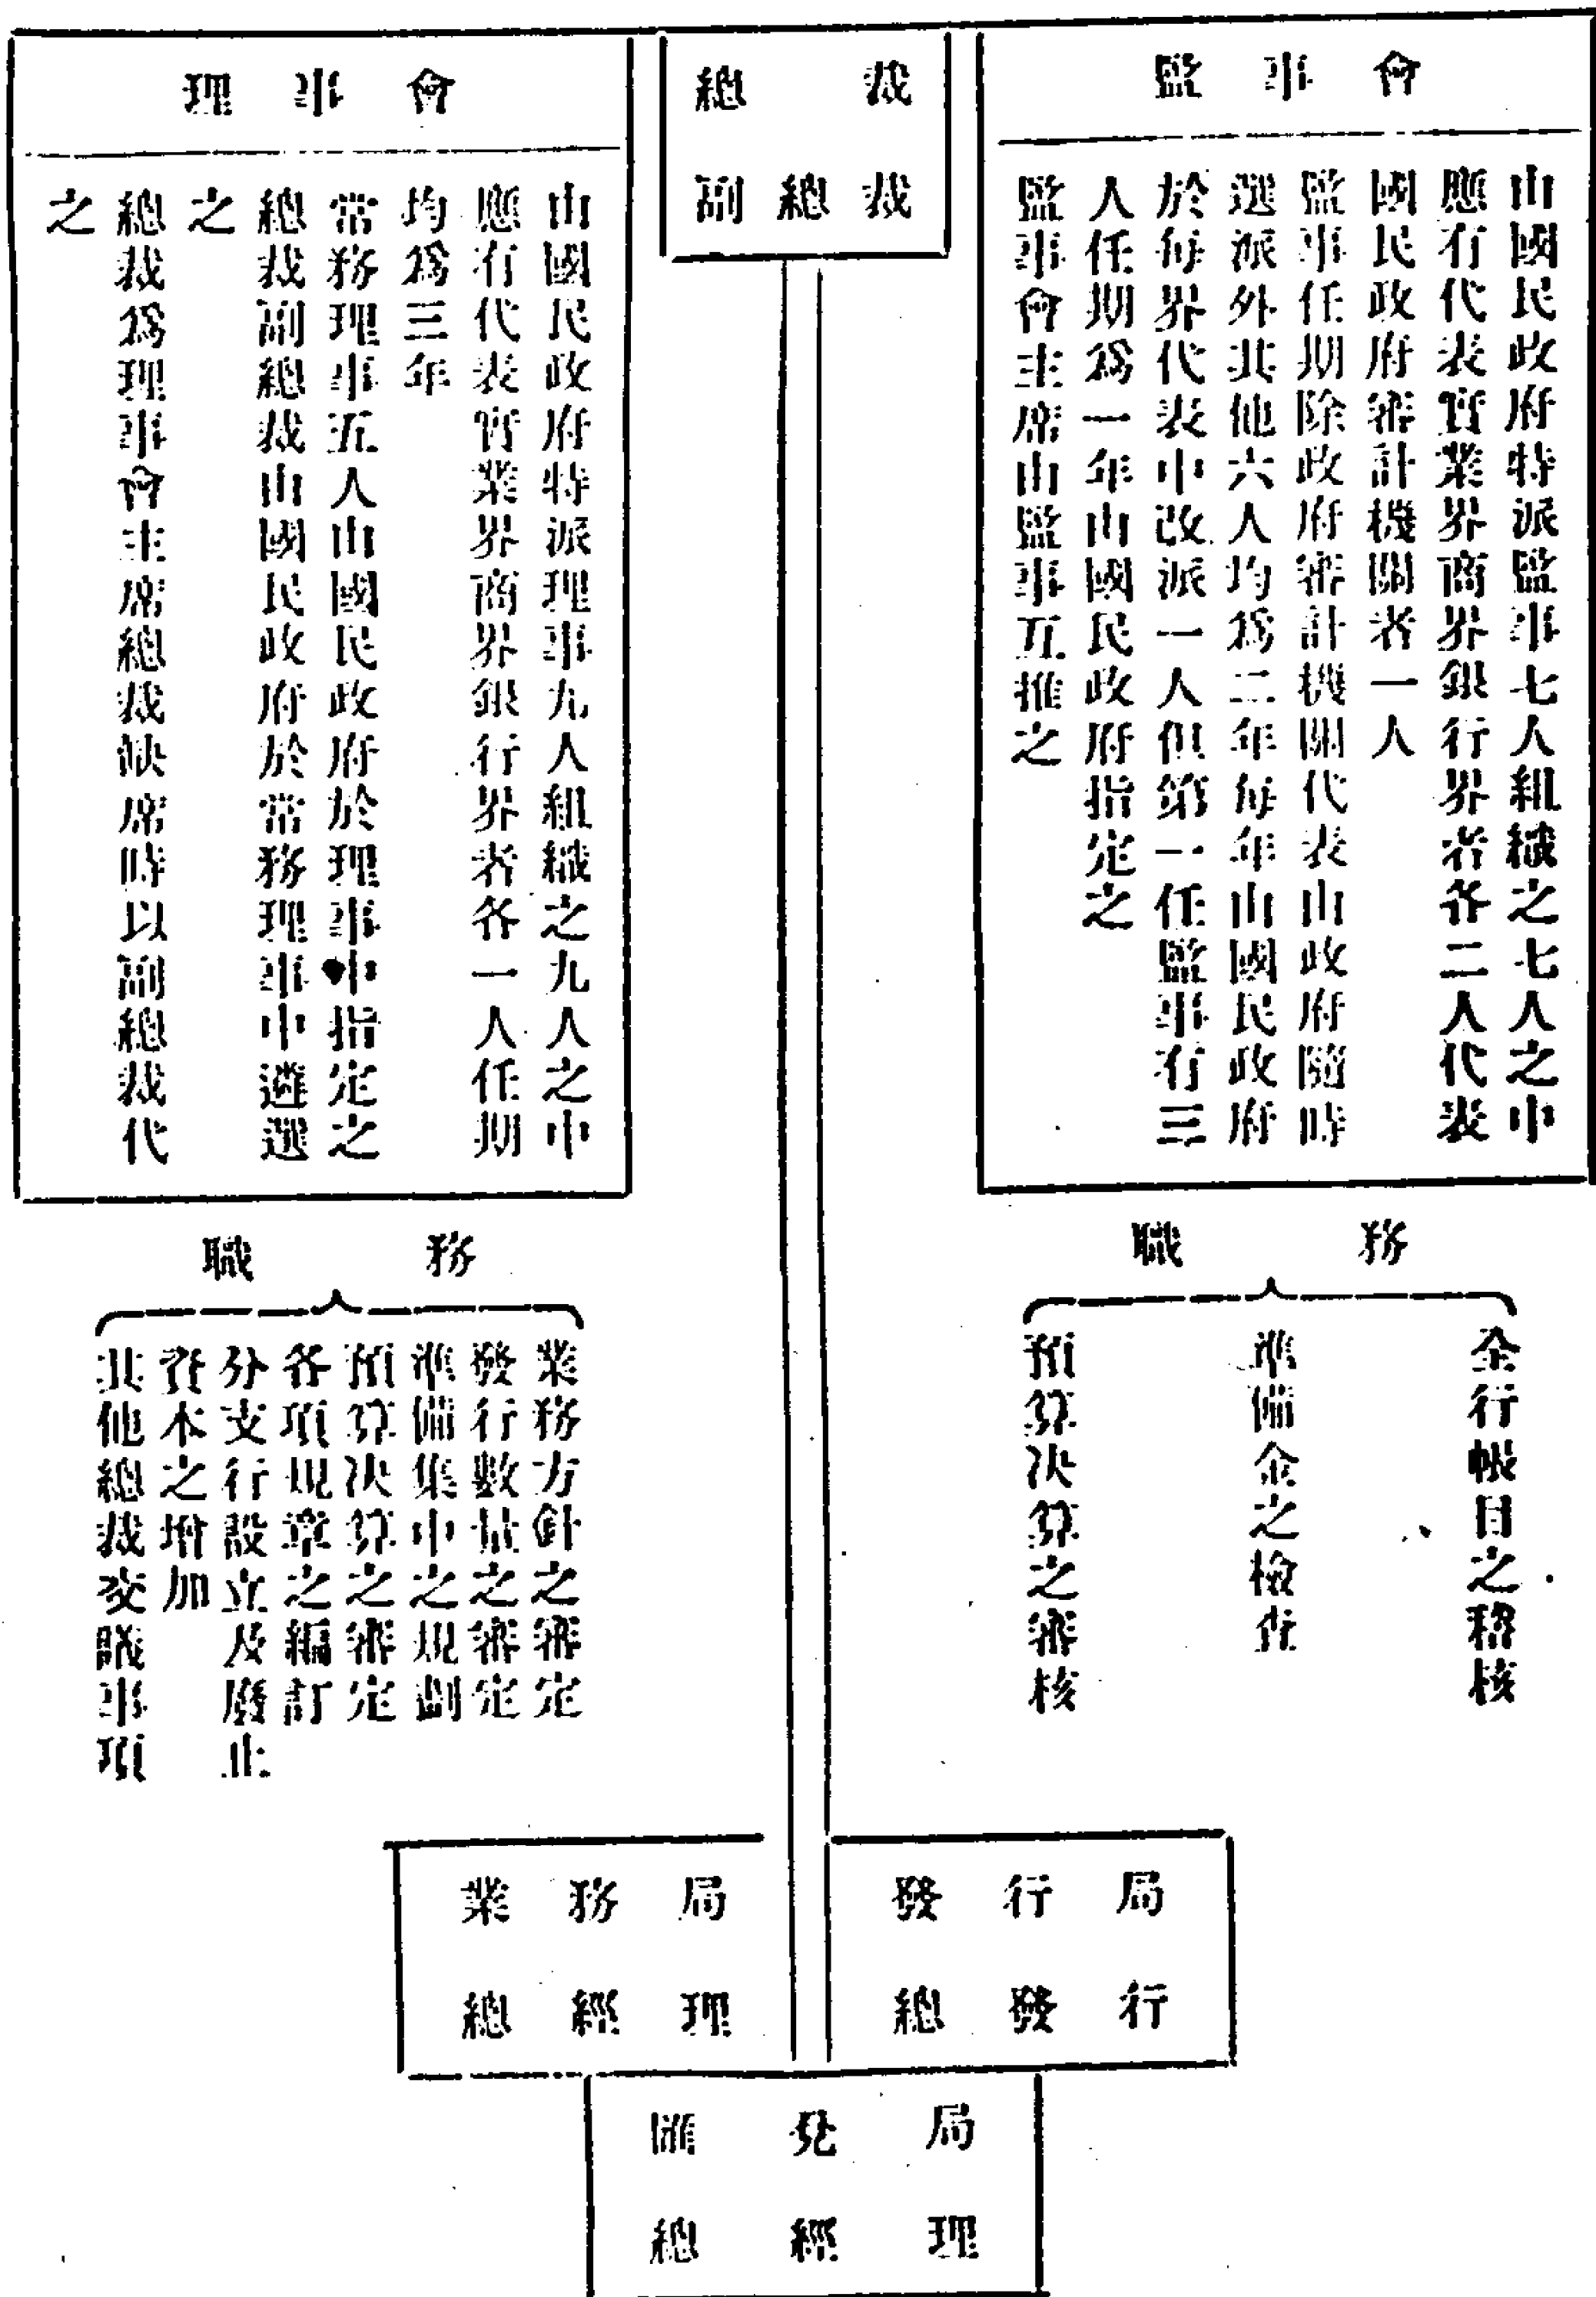 監事會
由國民政府特派監事七人組織之七人之中
應有代表實業界商界銀行界者各二人代表
國民政府審計機關者一人
監事任期除政府審計機關代表由政府隨時
選派外其他六人均爲二年每年由國民政府
於每界代表中改派一人但第一任監事有三
人任期爲一年由國民政府指定之
監事會主席由監事互推之
總裁
副總裁
理事會
由國民政府特派理事九人組織之九人之中
應有代表實業界商界銀行界者各一人任期
均爲三年
常務理事五人由國民政府於理事中指定之
總裁副總裁由國民政府於常務理事中遴選
之
總裁爲理事會主席總裁缺席時以副總裁代
之
職務
全行帳目之稽核
準備金之檢查
預算决算之審核
職務
業務方針之審定
發行數量之審定
準備集中之規劃
預算决算之審定
各項規章之編訂
分支行設立及廢止
資本之增加
其他總裁交議事項
業務局
總經理
發行局
總發行
匯兌局
總經理